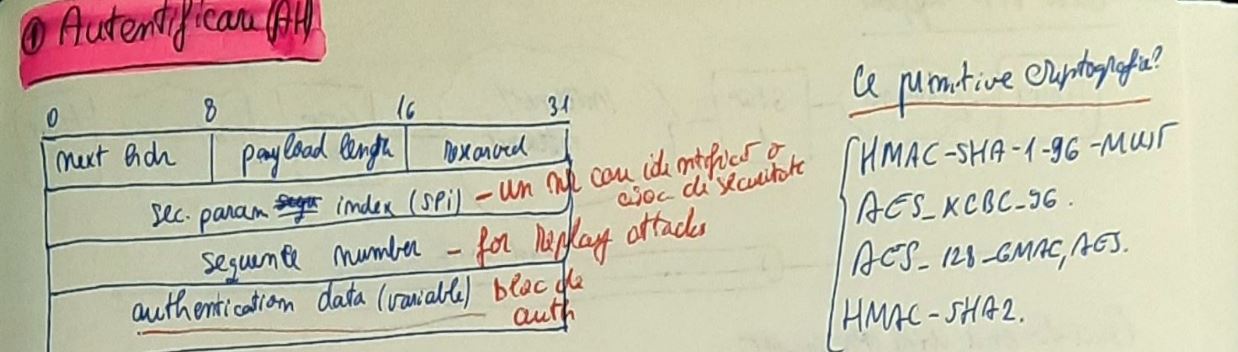 ① Autentificare (AH)
0 8 16 31
next hdr payload length rezerved
sec. param index (SPI) - un nr care identifică o
asoc. de securitate
sequence number - for replay attacks
authentication data (variable) bloc de
auth
Ce primitive criptografice?
HMAC-SHA-1-96 - MUST
AES_XCBC_96.
AES_128_GMAC, AES.
HMAC-SHA2.